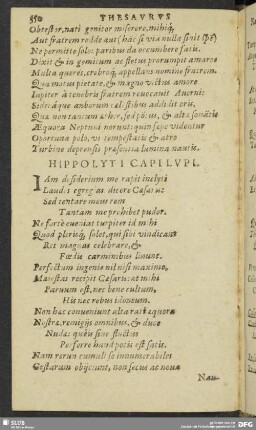 550 THESAVRVS
Obtestor, nati genitor miserere, mihiq́;
Aut fratrem redde aut hac si via nulla sinit spē
Ne permitte solo: paribus da occumbere fatis.
Dixit & in gemitum ac fletus prorumpit amaros
Multa querēs, crebroq́, appellans nomine fratrem.
Qua motus pietate, & magno victus amore
Iupiter à tenebris fratrem reuocauit Auerni:
Sideráque amborum cælestibus addidit oris,
Qua non tantum æther, sed pōtus, & alta sonātis
Æquora Neptuni norunt: quin sæpe videntur
Oportuna pati, vt tempestatis & atro
Turbine deprensis præsentia lumina nautis.
HIPPOLYTI CAPILVPI.
IAm desiderium me rapit inclyti
Laudis egregias dicere Cæsaris
Sed tentare meus rem
Tantam me prohibet pudor.
Ne forte eueniat turpiter id mihi
Quod plerisq́, solet, qui sibi vindicant
Rit magnos celebrare, &
Fœdis carminibus linunt.
Perfectum ingenio nil nisi maximo,
Maiestas recipit Cæsaris: at mihi
Paruum est, nec bene cultum,
Huic nec rebus idoneum.
Non hac conueniunt alta rati æquora
Nostræ, remigijs omnibus, & duce
Nudæ: quæis sine fluctus
Perferre haud potis est satis.
Nam rerum cumuli se innumerabiles
Gestarum obijciunt, non secus ac nouæ
Nau-
SLUB
DFG